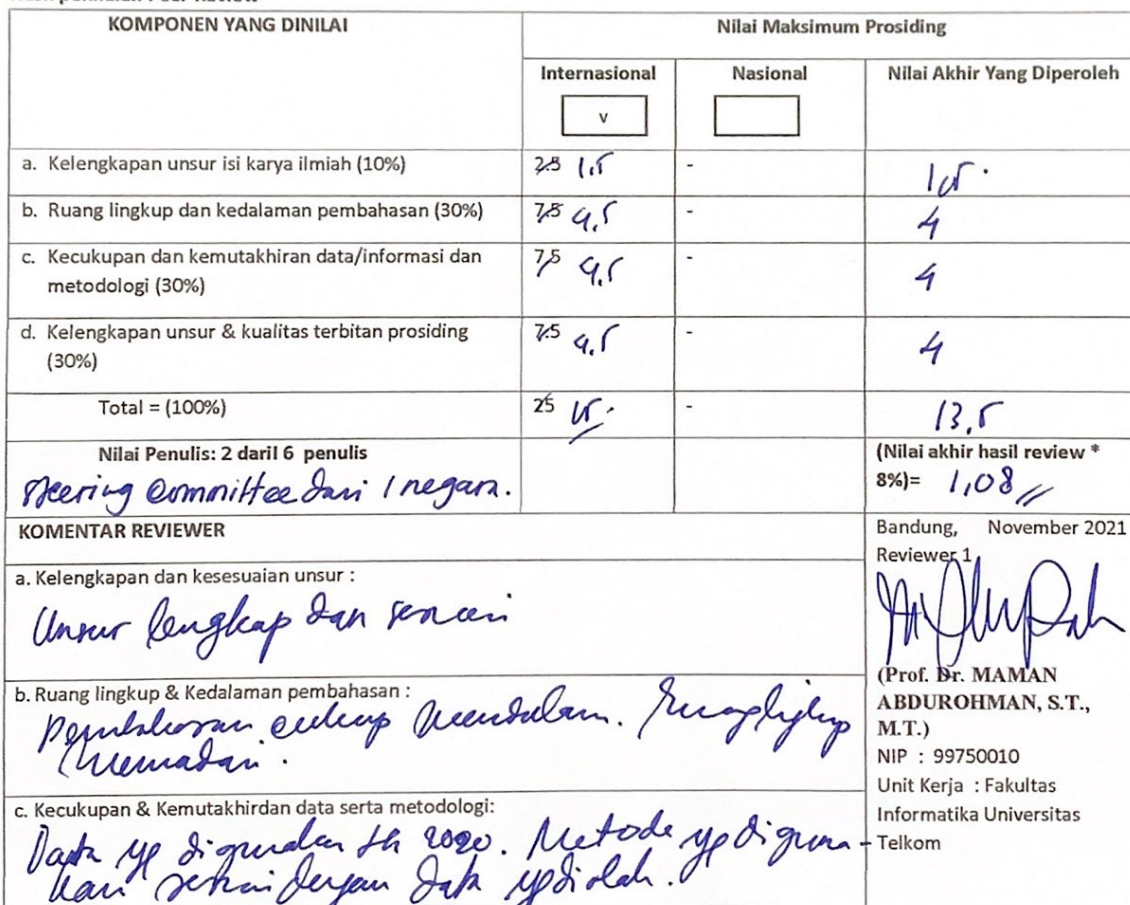 KOMPONEN YANG DINILAI
Nilai Maksimum Prosiding
Internasional
Nasional
Nilai Akhir Yang Diperoleh
v
a. Kelengkapan unsur isi karya ilmiah (10%)
2.5 1,5
-
1,5
b. Ruang lingkup dan kedalaman pembahasan (30%)
7,5 4,5
-
4
c. Kecukupan dan kemutakhiran data/informasi dan
metodologi (30%)
7,5 4,5
-
4
d. Kelengkapan unsur & kualitas terbitan prosiding
(30%)
7.5 4,5
-
4
Total = (100%)
25 15
-
13,5
Nilai Penulis: 2 daril 6 penulis
steering committee dari 1 negara.
(Nilai akhir hasil review *
8%)= 1,08
KOMENTAR REVIEWER
a. Kelengkapan dan kesesuaian unsur :
Unsur lengkap dan sesuai
b. Ruang lingkup & Kedalaman pembahasan :
Pembahasan cukup mendalam. Ruang lingkup
memadai.
c. Kecukupan & Kemutakhirdan data serta metodologi:
Data yg digunakan th 2020. Metode yg diguna-
kan sesuai dengan data yg diolah.
Bandung, November 2021
Reviewer 1
(Prof. Dr. MAMAN
ABDUROHMAN, S.T.,
M.T.)
NIP : 99750010
Unit Kerja : Fakultas
Informatika Universitas
Telkom